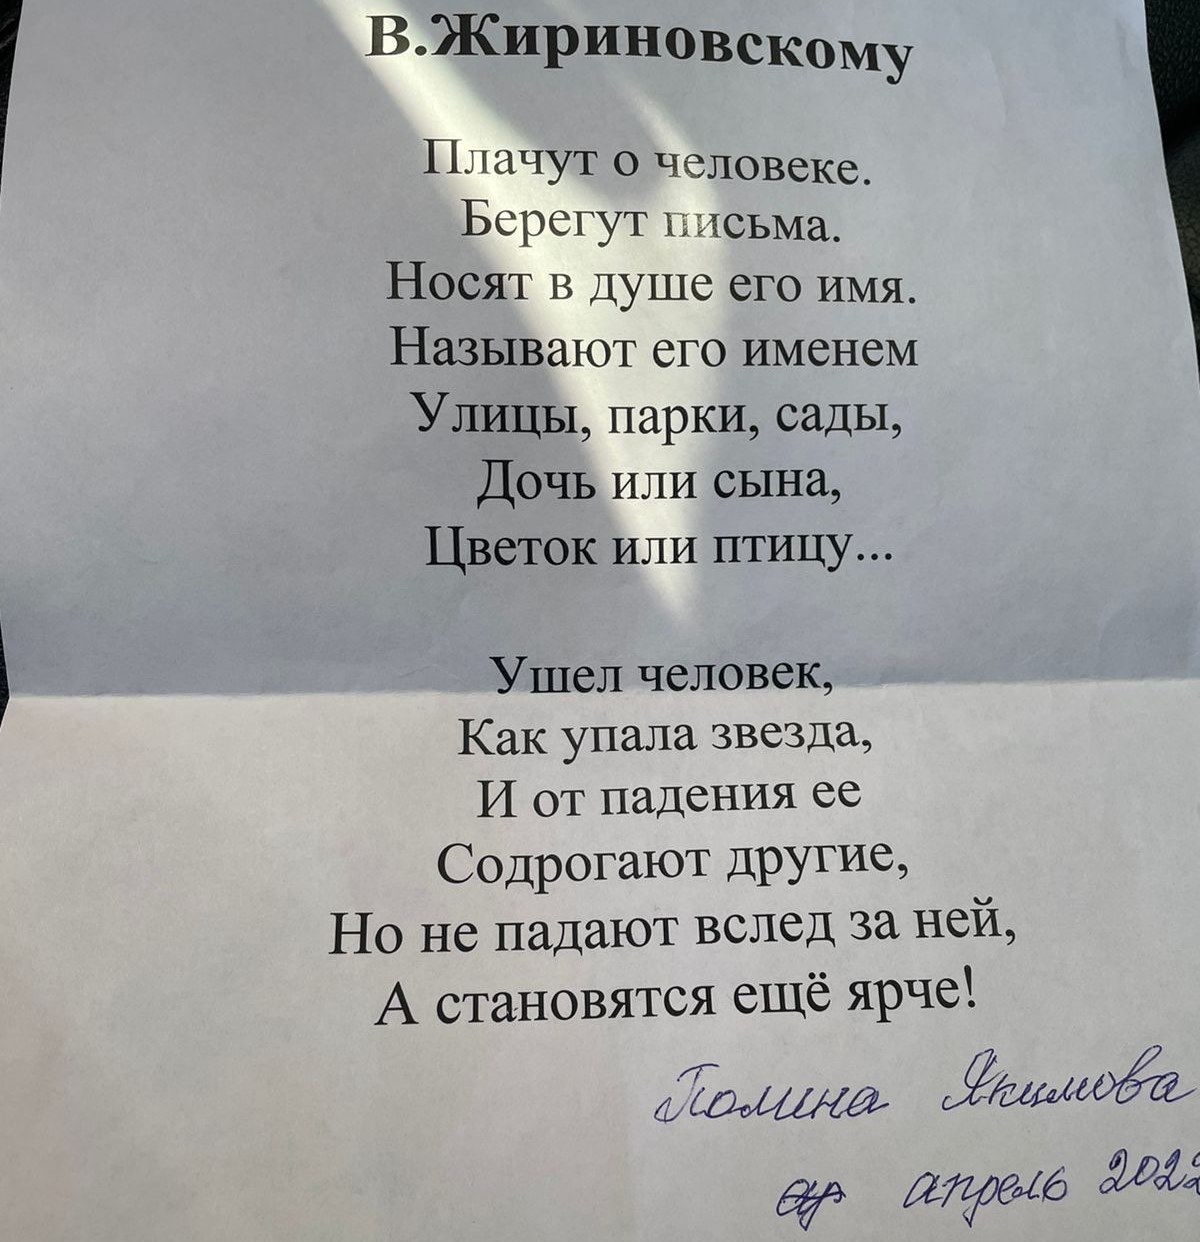 В.Жириновскому
Плачут о человеке.
Берегут письма.
Носят в душе его имя.
Называют его именем
Улицы, парки, сады,
Дочь или сына,
Цветок или птицу...
Ушел человек,
Как упала звезда,
И от падения ее
Содрогают другие,
Но не падают вслед за ней,
А становятся ещё ярче!
Полина Якимова
апрель 2022